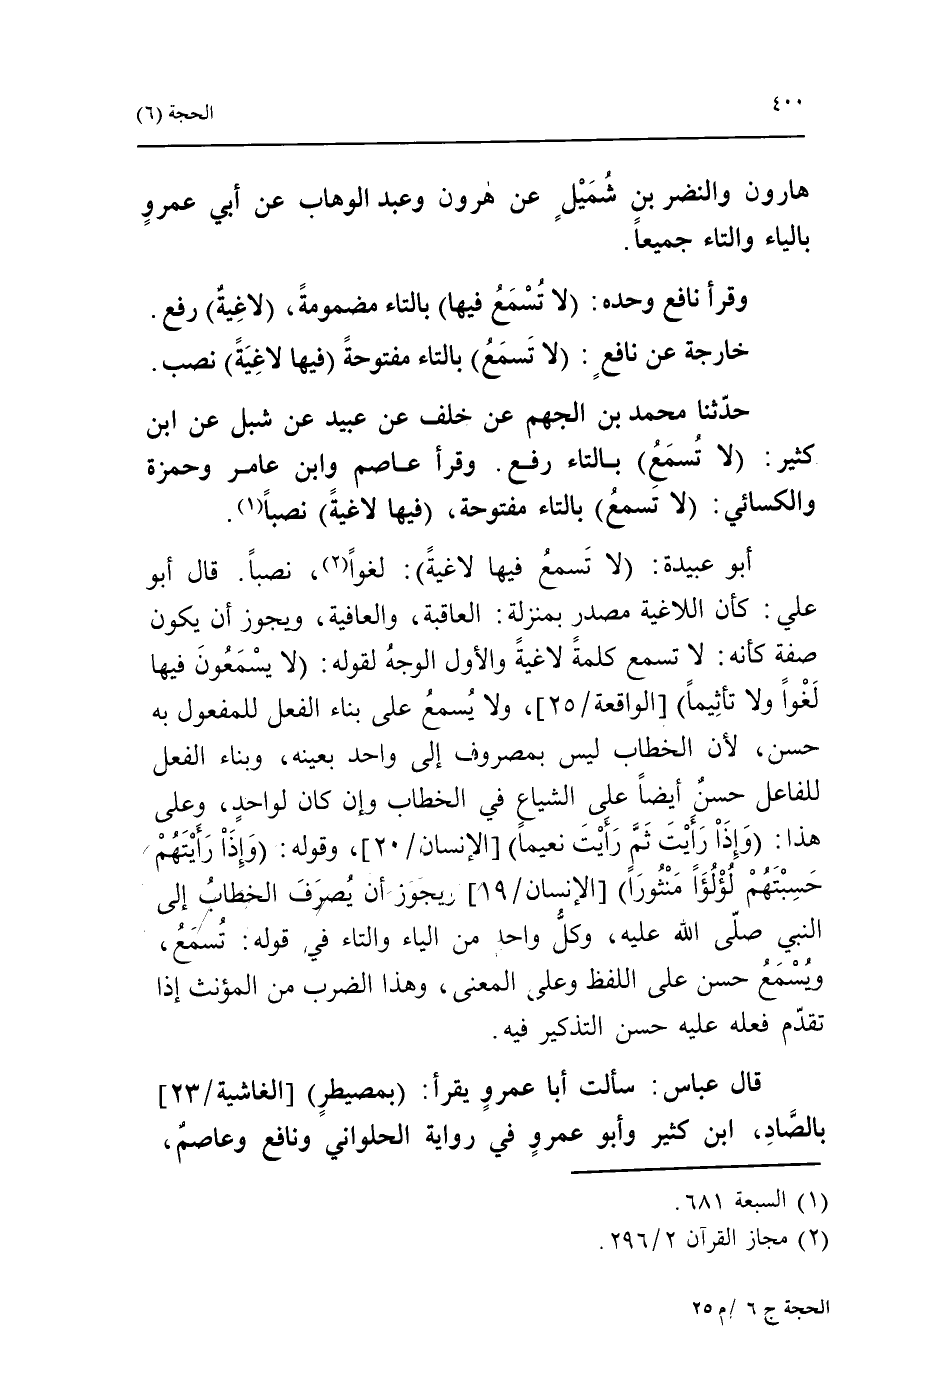 ٤٠٠
الحجة (٦)
هارون والنضر بن شُمَيْلٍ عن هٰرون وعبد الوهاب عن أبي عمروٍ
بالياء والتاء جميعاً.
وقرأ نافع وحده: (لا تُسْمَعُ فيها) بالتاء مضمومةً، (لاغِيةٌ) رفع.
خارجة عن نافعٍ: (لا تَسمَعُ) بالتاء مفتوحةً (فيها لاغِيَةً) نصب.
حدّثنا محمد بن الجهم عن خلف عن عبيد عن شبل عن ابن
كثير: (لا تُسمَعُ) بالتاء رفع. وقرأ عاصم وابن عامر وحمزة
والكسائي: (لا تَسمعُ) بالتاء مفتوحة، (فيها لاغيةً) نصباً(١).
أبو عبيدة: (لا تَسمعُ فيها لاغيةً): لغواً(٢)، نصباً. قال أبو
علي: كأن اللاغية مصدر بمنزلة: العاقبة، والعافية، ويجوز أن يكون
صفة كأنه: لا تسمع كلمةً لاغيةً والأول الوجهُ لقوله: (لا يسْمَعُونَ فيها
لَغْواً ولا تأثِيماً) [الواقعة/٢٥]، ولا يُسمعُ على بناء الفعل للمفعول به
حسن، لأن الخطاب ليس بمصروف إلى واحد بعينه، وبناء الفعل
للفاعل حسنٌ أيضاً على الشياع في الخطاب وإن كان لواحدٍ، وعلى
هذا: (وَإِذَا رَأَيْتَ ثَمَّ رَأَيْتَ نعيماً) [الإنسان/٢٠]، وقوله: (وَإِذَا رَأَيْتَهُمْ
حَسِبْتَهُمْ لُؤْلُؤَاً مَنْثُورَاً) [الإنسان/١٩] ويجوز أن يُصرَفَ الخطابُ إلى
النبي صلّى الله عليه، وكلُّ واحد من الياء والتاء في قوله: تُسمَعُ،
ويُسْمَعُ حسن على اللفظ وعلى المعنى، وهذا الضرب من المؤنث إذا
تقدّم فعله عليه حسن التذكير فيه.
قال عباس: سألت أبا عمروٍ يقرأ: (بمصيطرٍ) [الغاشية/٢٣]
بالصَّادِ، ابن كثير وأبو عمروٍ في رواية الحلواني ونافع وعاصمٌ،
(١) السبعة ٦٨١.
(٢) مجاز القرآن ٢/ ٢٩٦.
الحجة ج ٦ /م ٢٥